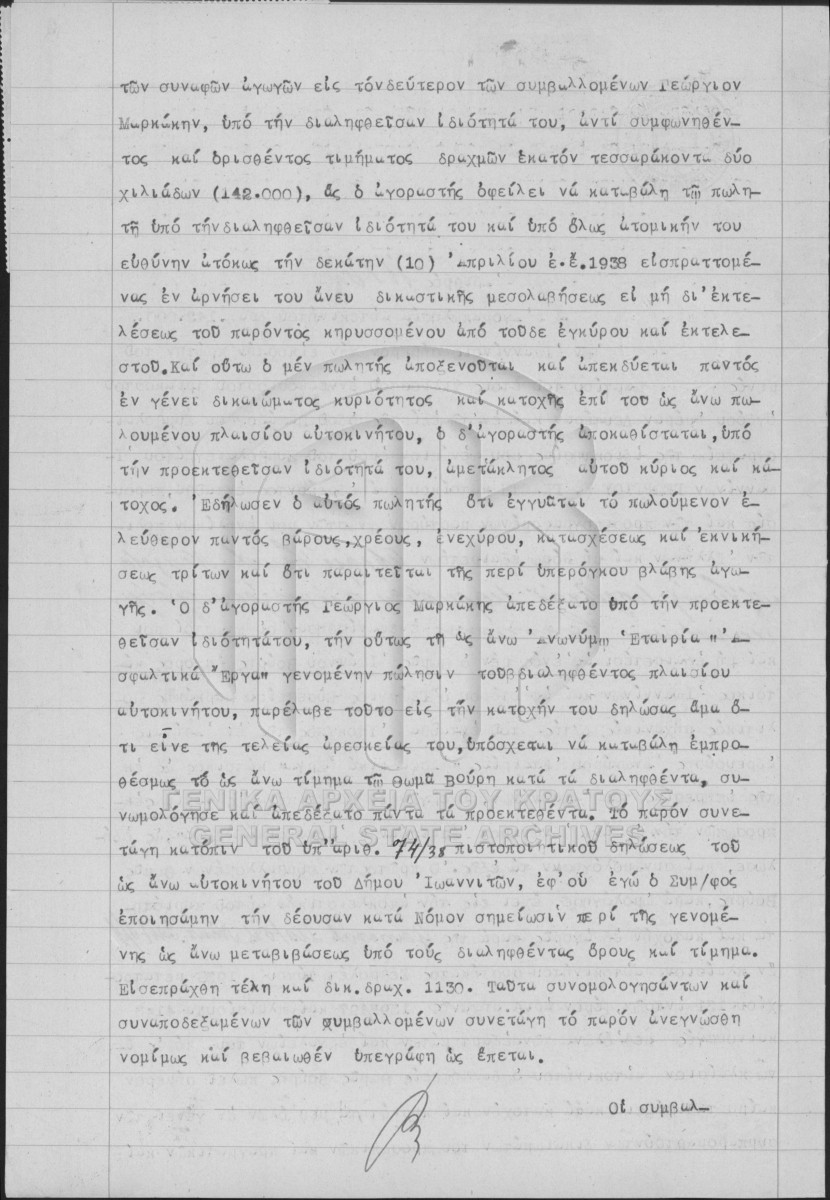 τῶν συναφῶν ἀγωγῶν εἰς τόνδεύτερον τῶν συμβαλλομένων Γεώργιον
Μαρκάκην, ὑπό τήν διαληφθεῖσαν ἰδιότητά του, ἀντί συμφωνηθέν-
τος καί ὁρισθέντος τιμήματος δραχμῶν ἑκατόν τεσσαράκοντα δύο
χιλιάδων (142.000), ἅς ὁ ἀγοραστής ὀφείλει νά καταβάλη τῷ πωλη-
τῇ ὑπό τήνδιαληφθεῖσαν ἰδιότητά του καί ὑπό ὅλως ἀτομικήν του
εὐθύνην ἀτόκως τήν δεκάτην (10) Ἀπριλίου ἐ.ἔ.1938 εἰσπραττομέ-
νας ἐν ἀρνήσει του ἄνευ δικαστικῆς μεσολαβήσεως εἰ μή δι'ἐκτε-
λέσεως τοῦ παρόντος κηρυσσομένου ἀπό τοῦδε ἐγκύρου καί ἐκτελε-
στοῦ.Καί οὕτω ὁ μέν πωλητής ἀποξενοῦται καί ἀπεκδύεται παντός
ἐν γένει δικαιώματος κυριότητος καί κατοχῆς ἐπί του ὡς ἄνω πω-
λουμένου πλαισίου αὐτοκινήτου, ὁ δ'ἀγοραστής ἀποκαθίσταται,ὑπό
τήν προεκτεθεῖσαν ἰδιότητά του, ἀμετάκλητος αὐτοῦ κύριος καί κά-
τοχος. Ἐδήλωσεν ὁ αὐτός πωλητής ὅτι ἐγγυᾶται τό πωλούμενον ἐ-
λεύθερον παντός βάρους,χρέους, ἐνεχύρου, κατασχέσεως καί ἐκνική-
σεως τρίτων καί ὅτι παραιτεῖται τῆς περί ὑπερόγκου βλάβης ἀγω-
γῆς. Ὁ δ'ἀγοραστής Γεώργιος Μαρκάκης ἀπεδέξατο ὑπό τήν προεκτε-
θεῖσαν ἰδιότητάτου, τήν οὕτως τῇ ὡς ἄνω Ἀνωνύμῳ Ἑταιρία "Ἀ-
σφαλτικά Ἔργα" γενομένην πώλησιν τοῦβδιαληφθέντος πλαισίου
αὐτοκινήτου, παρέλαβε τοῦτο εἰς τήν κατοχήν του δηλώσας ἅμα ὅ-
τι εἶνε τῆς τελείας ἀρεσκείας του,ὑπόσχεται νά καταβάλη ἐμπρο-
θέσμως τό ὡς ἄνω τίμημα τῷ Θωμᾶ Βούρη κατά τά διαληφθέντα, συ-
νωμολόγησε καί ἀπεδέξατο πάντα τά προεκτεθέντα. Τό παρόν συνε-
ΓΕΝΙΚΑ ΑΡΧΕΙΑ ΤΟΥ ΚΡΑΤΟΥΣ
GENERAL STATE ARCHIVES
τάγη κατόπιν τοῦ ὑπ'ἀριθ. 74/38 πιστοποιητικοῦ δηλώσεως τοῦ
ὡς ἄνω αὐτοκινήτου τοῦ Δήμου Ἰωαννιτῶν, ἐφ'οὗ ἐγώ ὁ Συμ/φος
ἐποιησάμην τήν δέουσαν κατά Νόμον σημείωσιν περί τῆς γενομέ-
νης ὡς ἄνω μεταβιβάσεως ὑπό τούς διαληφθέντας ὅρους καί τίμημα.
Εἰσεπράχθη τέλη καί δικ.δραχ. 1130. Ταῦτα συνομολογησάντων καί
συναποδεξαμένων τῶν συμβαλλομένων συνετάγη τό παρόν ἀνεγνώσθη
νομίμως καί βεβαιωθέν ὑπεγράφη ὡς ἕπεται.
Οἱ συμβαλ-